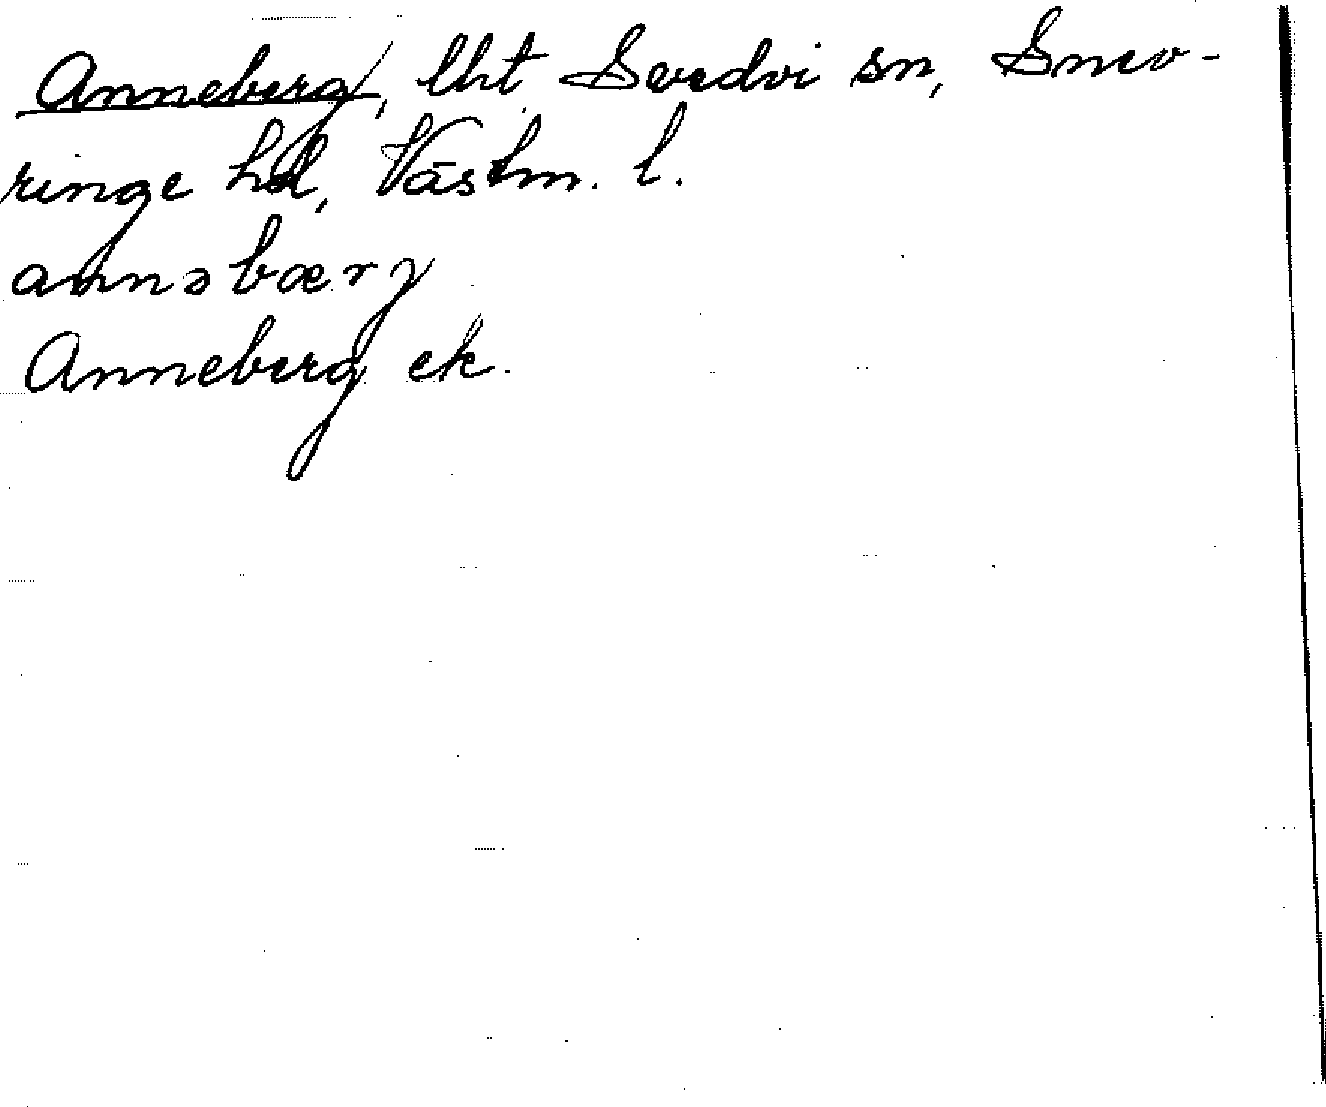 Anneberg, lht Svedvi sn, Snev-
ringe hd, Västm. l.
annəbærγ
Anneberg ek.